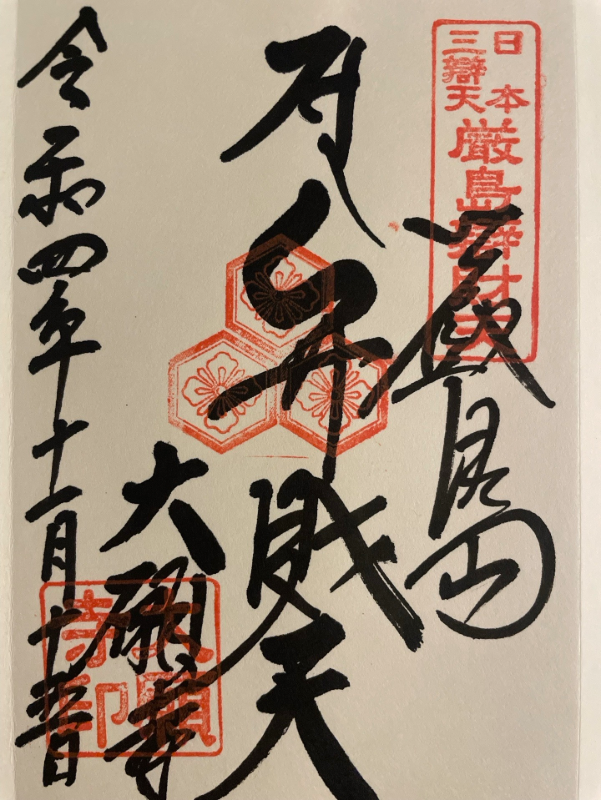 日本
三辯天
厳島辯財天
厳島
弁財天
大願寺
大願寺印
令和四年十一月